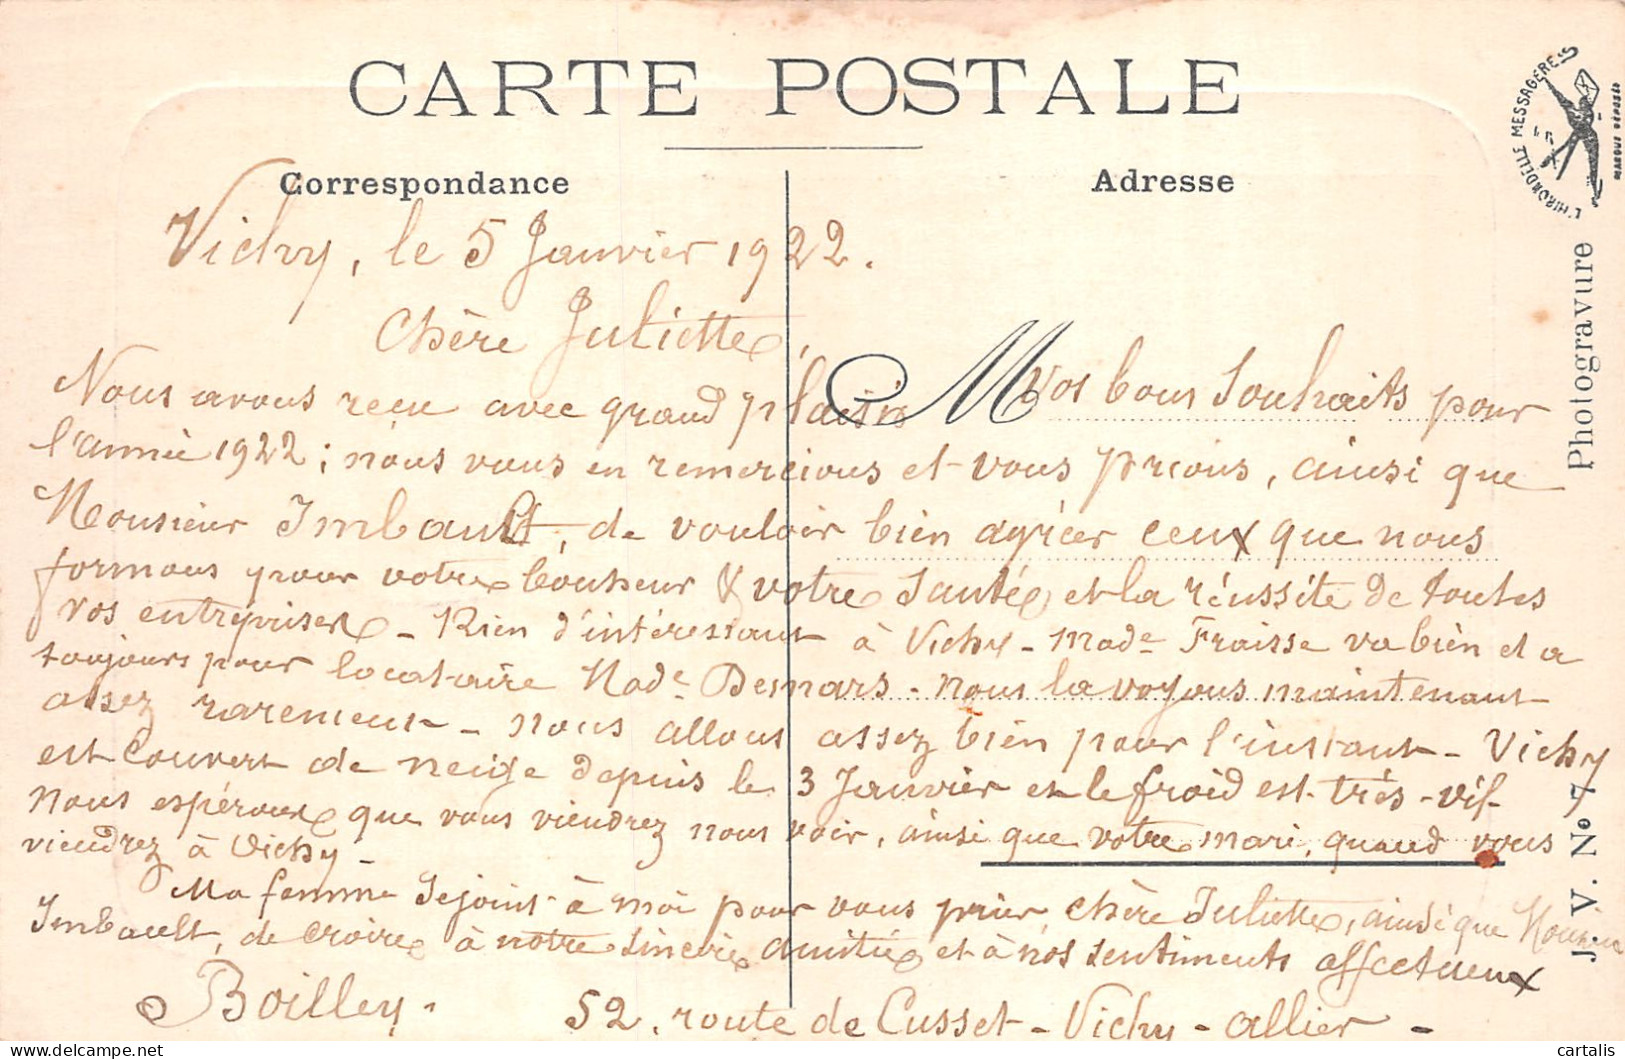 CARTE POSTALE
Correspondance
Adresse
L'HIRONDELLE MESSAGÈRE
MARQUE DÉPOSÉE
Photogravure
J. V. No 7
Vichy, le 5 Janvier 1922.
Chère Juliette,
Nous avons reçu avec grand plaisir M vos bons souhaits pour
l'année 1922 ; nous vous en remercions et vous prions, ainsi que
Monsieur Imbault, de vouloir bien agréer ceux que nous
formons pour votre bonheur & votre santé et la réussite de toutes
vos entreprises - Rien d'intéressant à Vichy - Made Fraisse va bien et a
toujours pour locataire Made Desmars - nous la voyons maintenant
assez rarement - nous allons assez bien pour l'instant - Vichy
est couvert de neige depuis le 3 Janvier et le froid est très-vif-
nous espérons que vous viendrez nous voir, ainsi que votre mari, quand vous
viendrez à Vichy -
Ma femme se joint à moi pour vous prier chère Juliette, ainsi que
Imbault, de croire à notre sincère amitié et à nos sentiments affectueux
Boilley.
52, route de Cusset - Vichy - allier -
cartalis